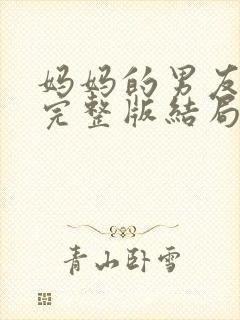 妈妈的男友
完整版結局
青山卧雪